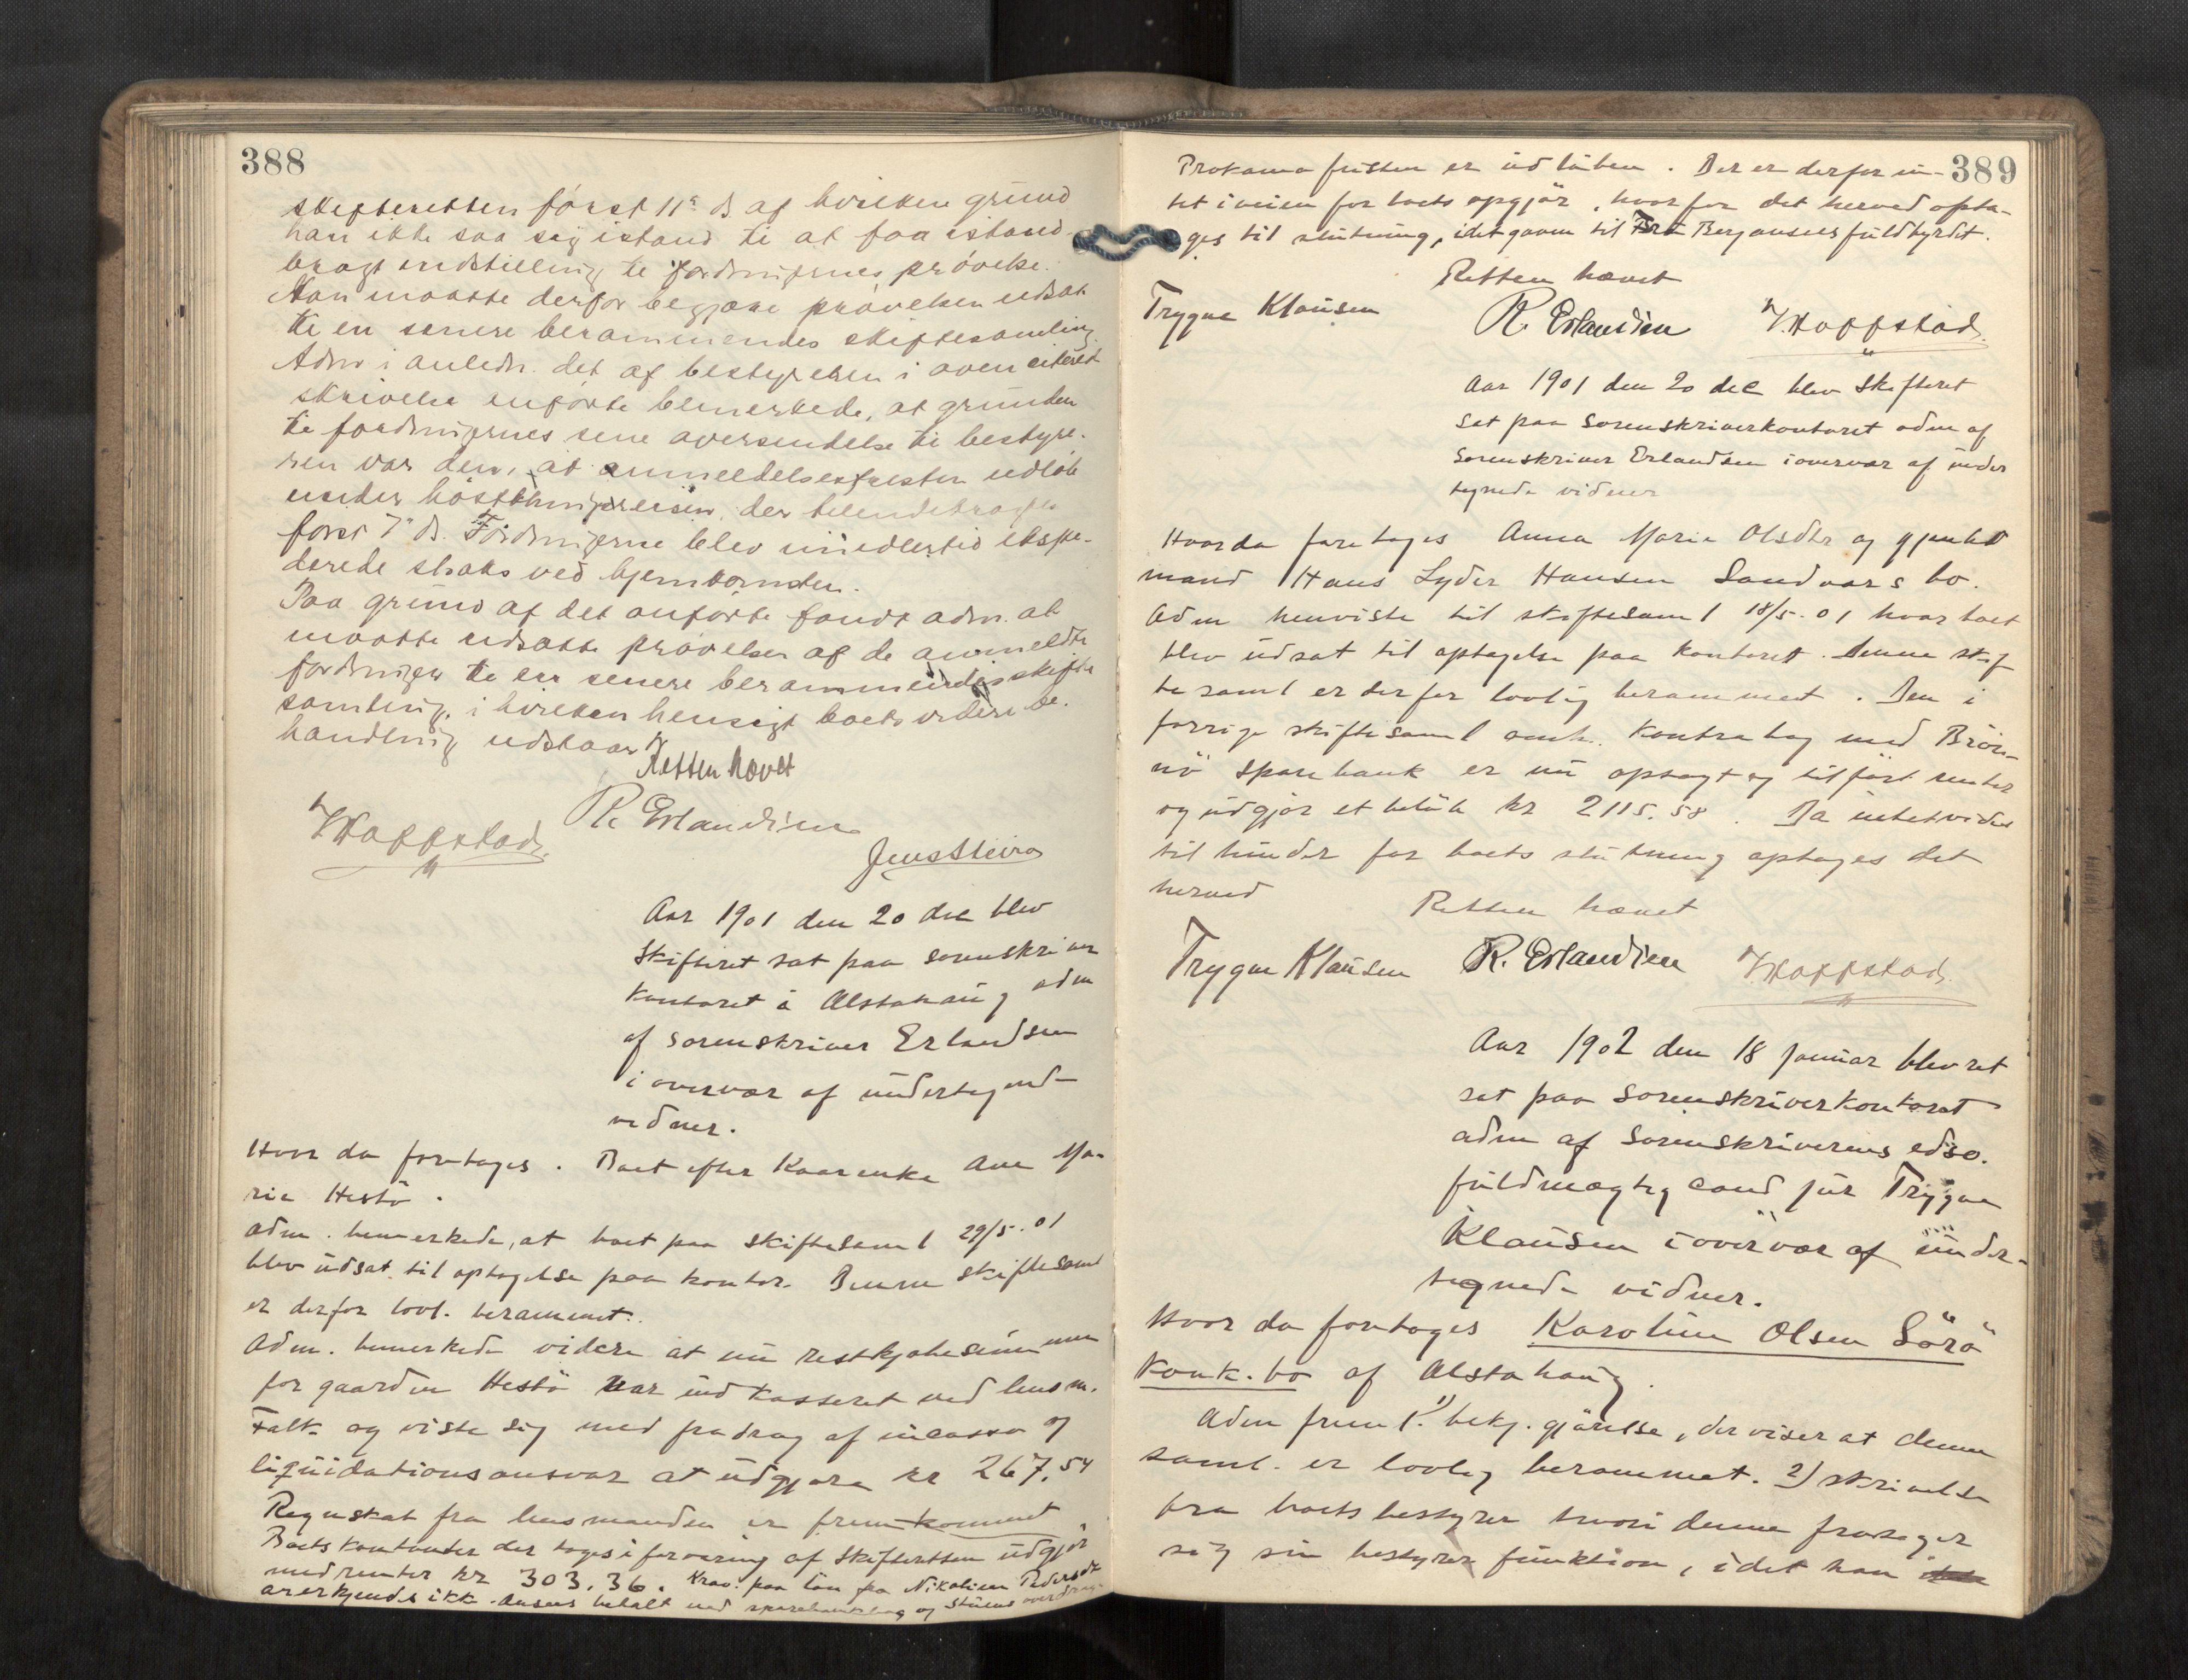 388
skifteretten först 11te ds. af hvilken grund
han ikke saa sig istand til at faa istand-
bragt indstilling til fordringernes prövelse.
Han maatte derfor begjære prövelsen udsat
til en senere berammendes skiftesamling.
Adm i anledn. det af bestyreren i oven citeret
skrivelse anförte bemerkede, at grunden
til fordringernes sene oversendelse til bestyre-
ren var den, at anmeldelsesfristen udlöb
under höstthingreisen, der tilendebragtes
først 7de ds. Fordringerne blev imidlertid ekspe-
derede straks ved hjemkomsten.
Paa grund af det anförte fandt adm. at
maatte udsætte prövelsen af de anmeldte
fordringer til en senere berammendes skifte
samling, i hvilken hensigt boets videre be-
handling udstaar
Retten hævet
R. Erlandsen
Jens Steiro
Aar 1901 den 20 dec blev
Skifteret sat paa sorenskriver
kontoret i Alstahaug adm
af sorenskriver Erlandsen
i overvær af undertegnede
vidner.
Hvor da foretoges. Boet efter Kaarenke Ane Ma-
rie Hestö.
adm. bemerkede, at boet paa skiftesaml 29/5. 01
blev udsat til optagelse paa kontor. Denne skiftesaml
er derfor lovl. berammet.
Adm. bemerkede videre at nu restkjöbesummen
for gaarden Hestö var indkasseret ved lensm.
Falk og viste sig med fradrag af incasso og
liquidationsansvar at udgjøre kr 267.54
Regnskab fra lensmanden er fremkommet
Boets kontanter der toges i forvaring af Skifteretten udgjør
med renter kr 303.36. Krav. paa lön fra Nikoline Pedersdt
anerkjendes ikke. Ansees betalt ved sparebankbog og
389
Proklama fristen er udlöben. Der er derfor in-
tet iveien for boets opgjör, hvorfor det herved opta-
ges til slutning, idet gaven til Brita Bergansees fuldbyrdet.
Retten hævet
Trygve Klausen
R. Erlandsen
Aar 1901 den 20 dec blev Skifteret
sat paa sorenskriverkontoret adm af
sorenskriver Erlandsen i overvær af under
tegnede vidner
Hvorda foretoges Anna Marie Olsdtr og gjenlev
mand Hans Lyder Hansen Sandværs bo.
Adm henviste til skiftesaml 18/5. 01 hvor boet
blev udsat til optagelse paa kontoret. Denne skif
tesaml er derfor lovlig berammet. Den i
forrige skiftesaml omh. Kontrabog med Brön-
nö Sparebank er nu opsagt og tilfört renter
og udgjör et belöb kr 2115.58. Da intet videre
til hinder for boets slutning optages det
herved
Retten hævet
Trygve Klausen
R. Erlandsen
Aar 1902 den 18 Januar blev ret
sat paa sorenskriverkontoret
adm af sorenskriverens edsv.
fuldmægtig cand jur Trygve
Klausen i overvær af under-
tegnede vidner.
Hvor da foretoges Karoline Olsen Sörö
konk. bo af Alstahaug.
Adm freml. 1) bekj.gjörelse, der viser at denne
saml. er lovlig berammet. 2) skrivelse
fra boets bestyrer hvori denne frasiger
sig sin bestyrer funktion, idet han